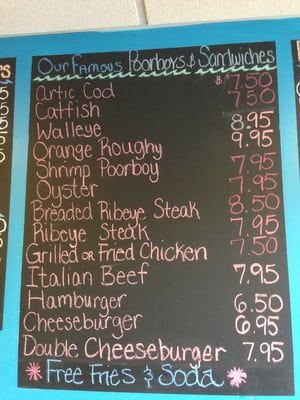 Our Famous Poorboys & Sandwiches
Artic Cod $7.50
Catfish 7.50
Walleye 8.95
Orange Roughy 9.95
Shrimp Poorboy 7.95
Oyster 7.95
Breaded Ribeye Steak 8.50
Ribeye Steak 7.95
Grilled or Fried Chicken 7.50
Italian Beef 7.95
Hamburger 6.50
Cheeseburger 6.95
Double Cheeseburger 7.95
Free Fries & Soda